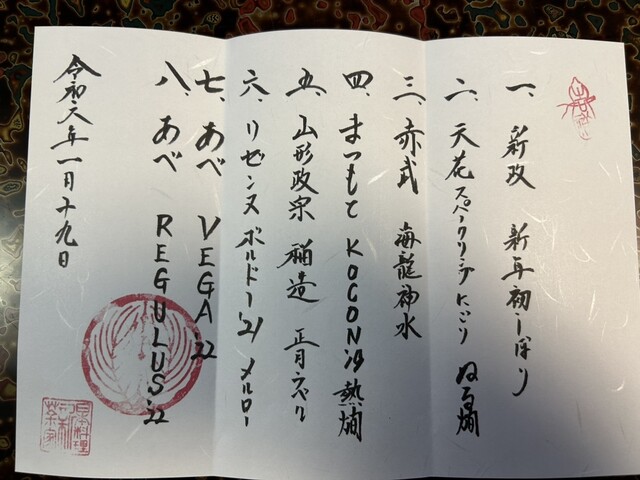 一、新政 新年初しぼり
二、天花スパークリングにごり ぬる燗
三、赤武 海龍神水
四、まつもと KOCON汐 熱燗
五、山形政宗 稲造 正月ラベル
六、リゼンヌ ボルドー'21 メルロー
七、あべ VEGA 22
八、あべ REGULUS '22
令和六年一月十九日